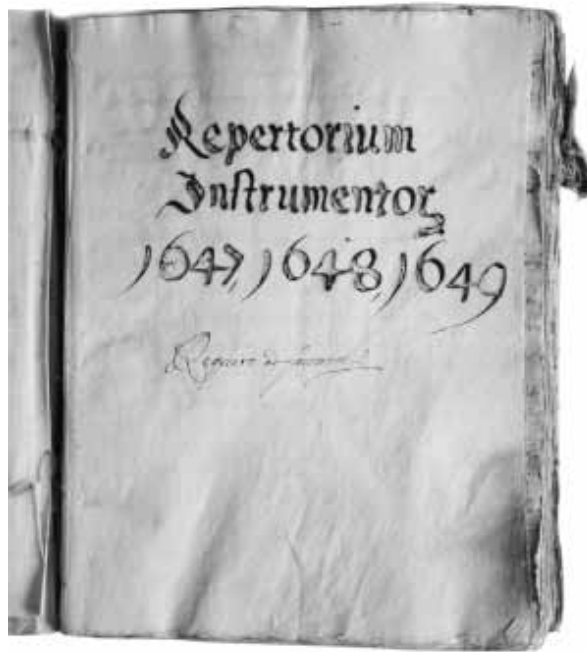 Repertorium
Instrumentorꝝ
1647, 1648, 1649